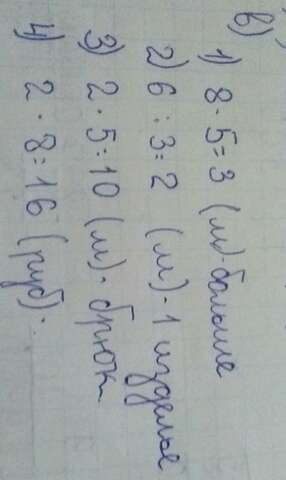 в)
1) 8 · 5 = 3 (м) - больше
2) 6 : 3 = 2 (м) - 1 изделье
3) 2 · 5 = 10 (м) - брюк
4) 2 · 8 = 16 (руб).